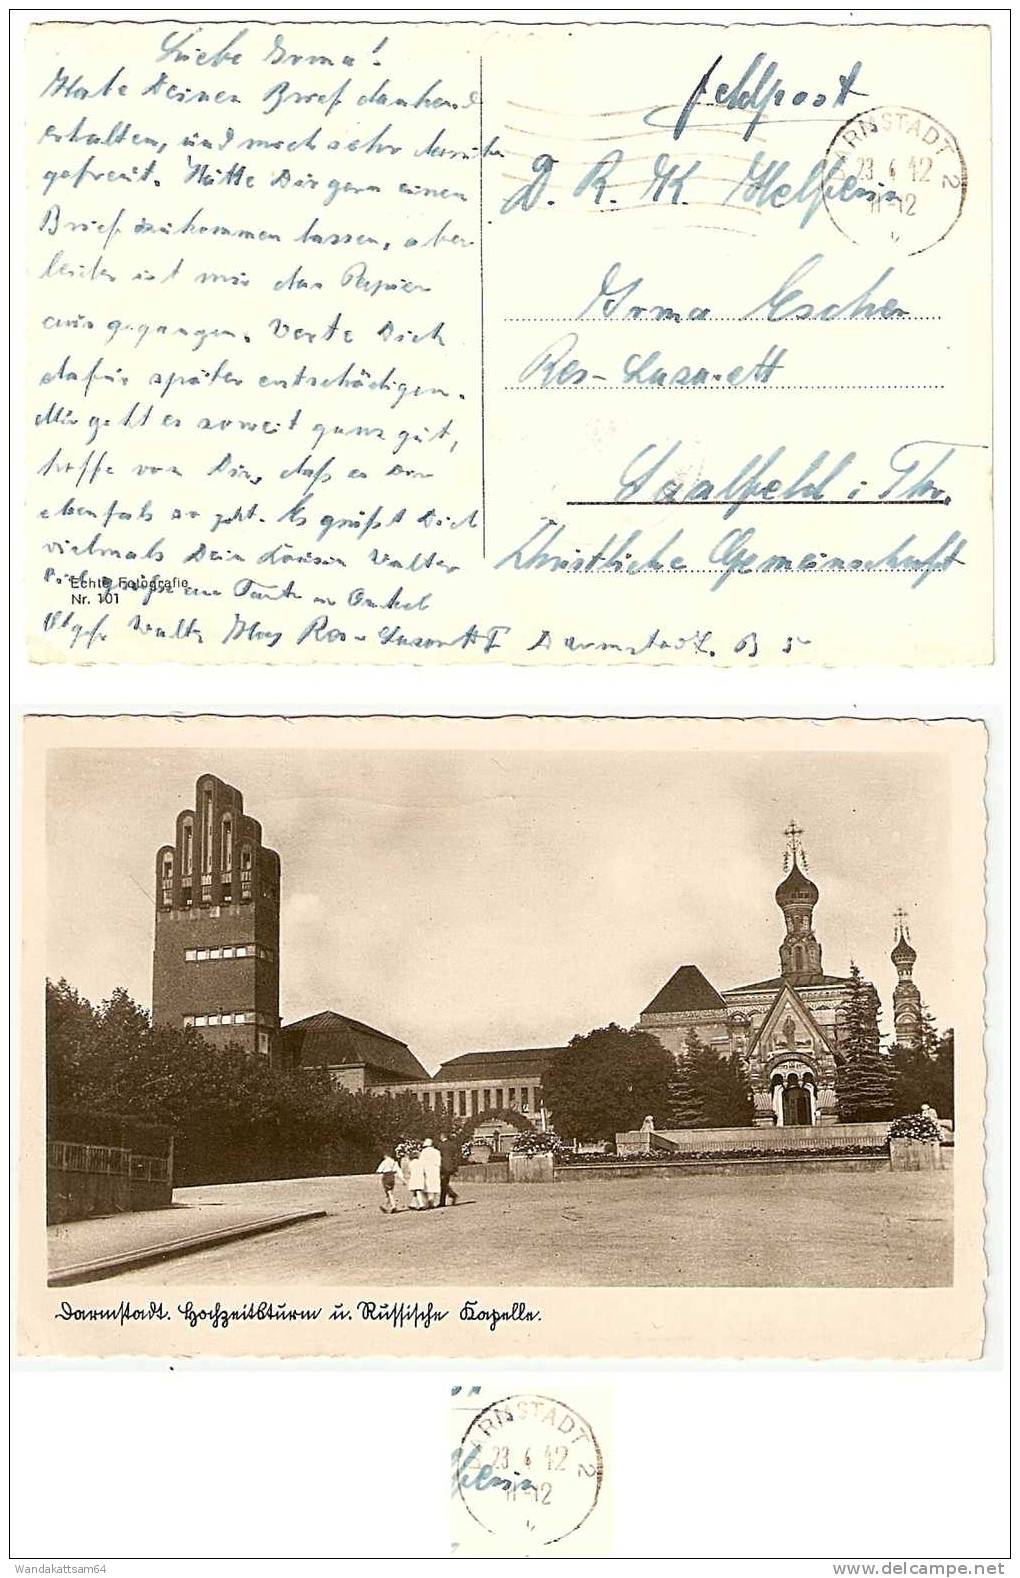 Liebe Irma!
Habe Deinen Brief dankend
erhalten, und mich sehr darüber
gefreut. Hätte Dir gern einen
Brief zukommen lassen, aber
leider ist mir das Papier
ausgegangen. Werte Dich
dafür später entschädigen.
Mir geht es soweit ganz gut,
hoffe von Dir, daß es Dir
ebenfals so geht. Es grüßt Dich
vielmals Dein Cousin Walter
Viel Grüße an Tante u Onkel
Walter Res-Lazarett I Darmstadt. B 5
Echte Fotografie
Nr. 101
Feldpost
DARMSTADT 2
23 4 42
11-12
D. R. K. Helferin
Irma Escher
Res-Lazarett
Saalfeld i Thür.
Christliche Gemeinschaft
Darmstadt. Hochzeitsturm u. Russische Kapelle.
DARMSTADT 2
23 4 42
11-12
Wandakattsam64
www.delcampe.net